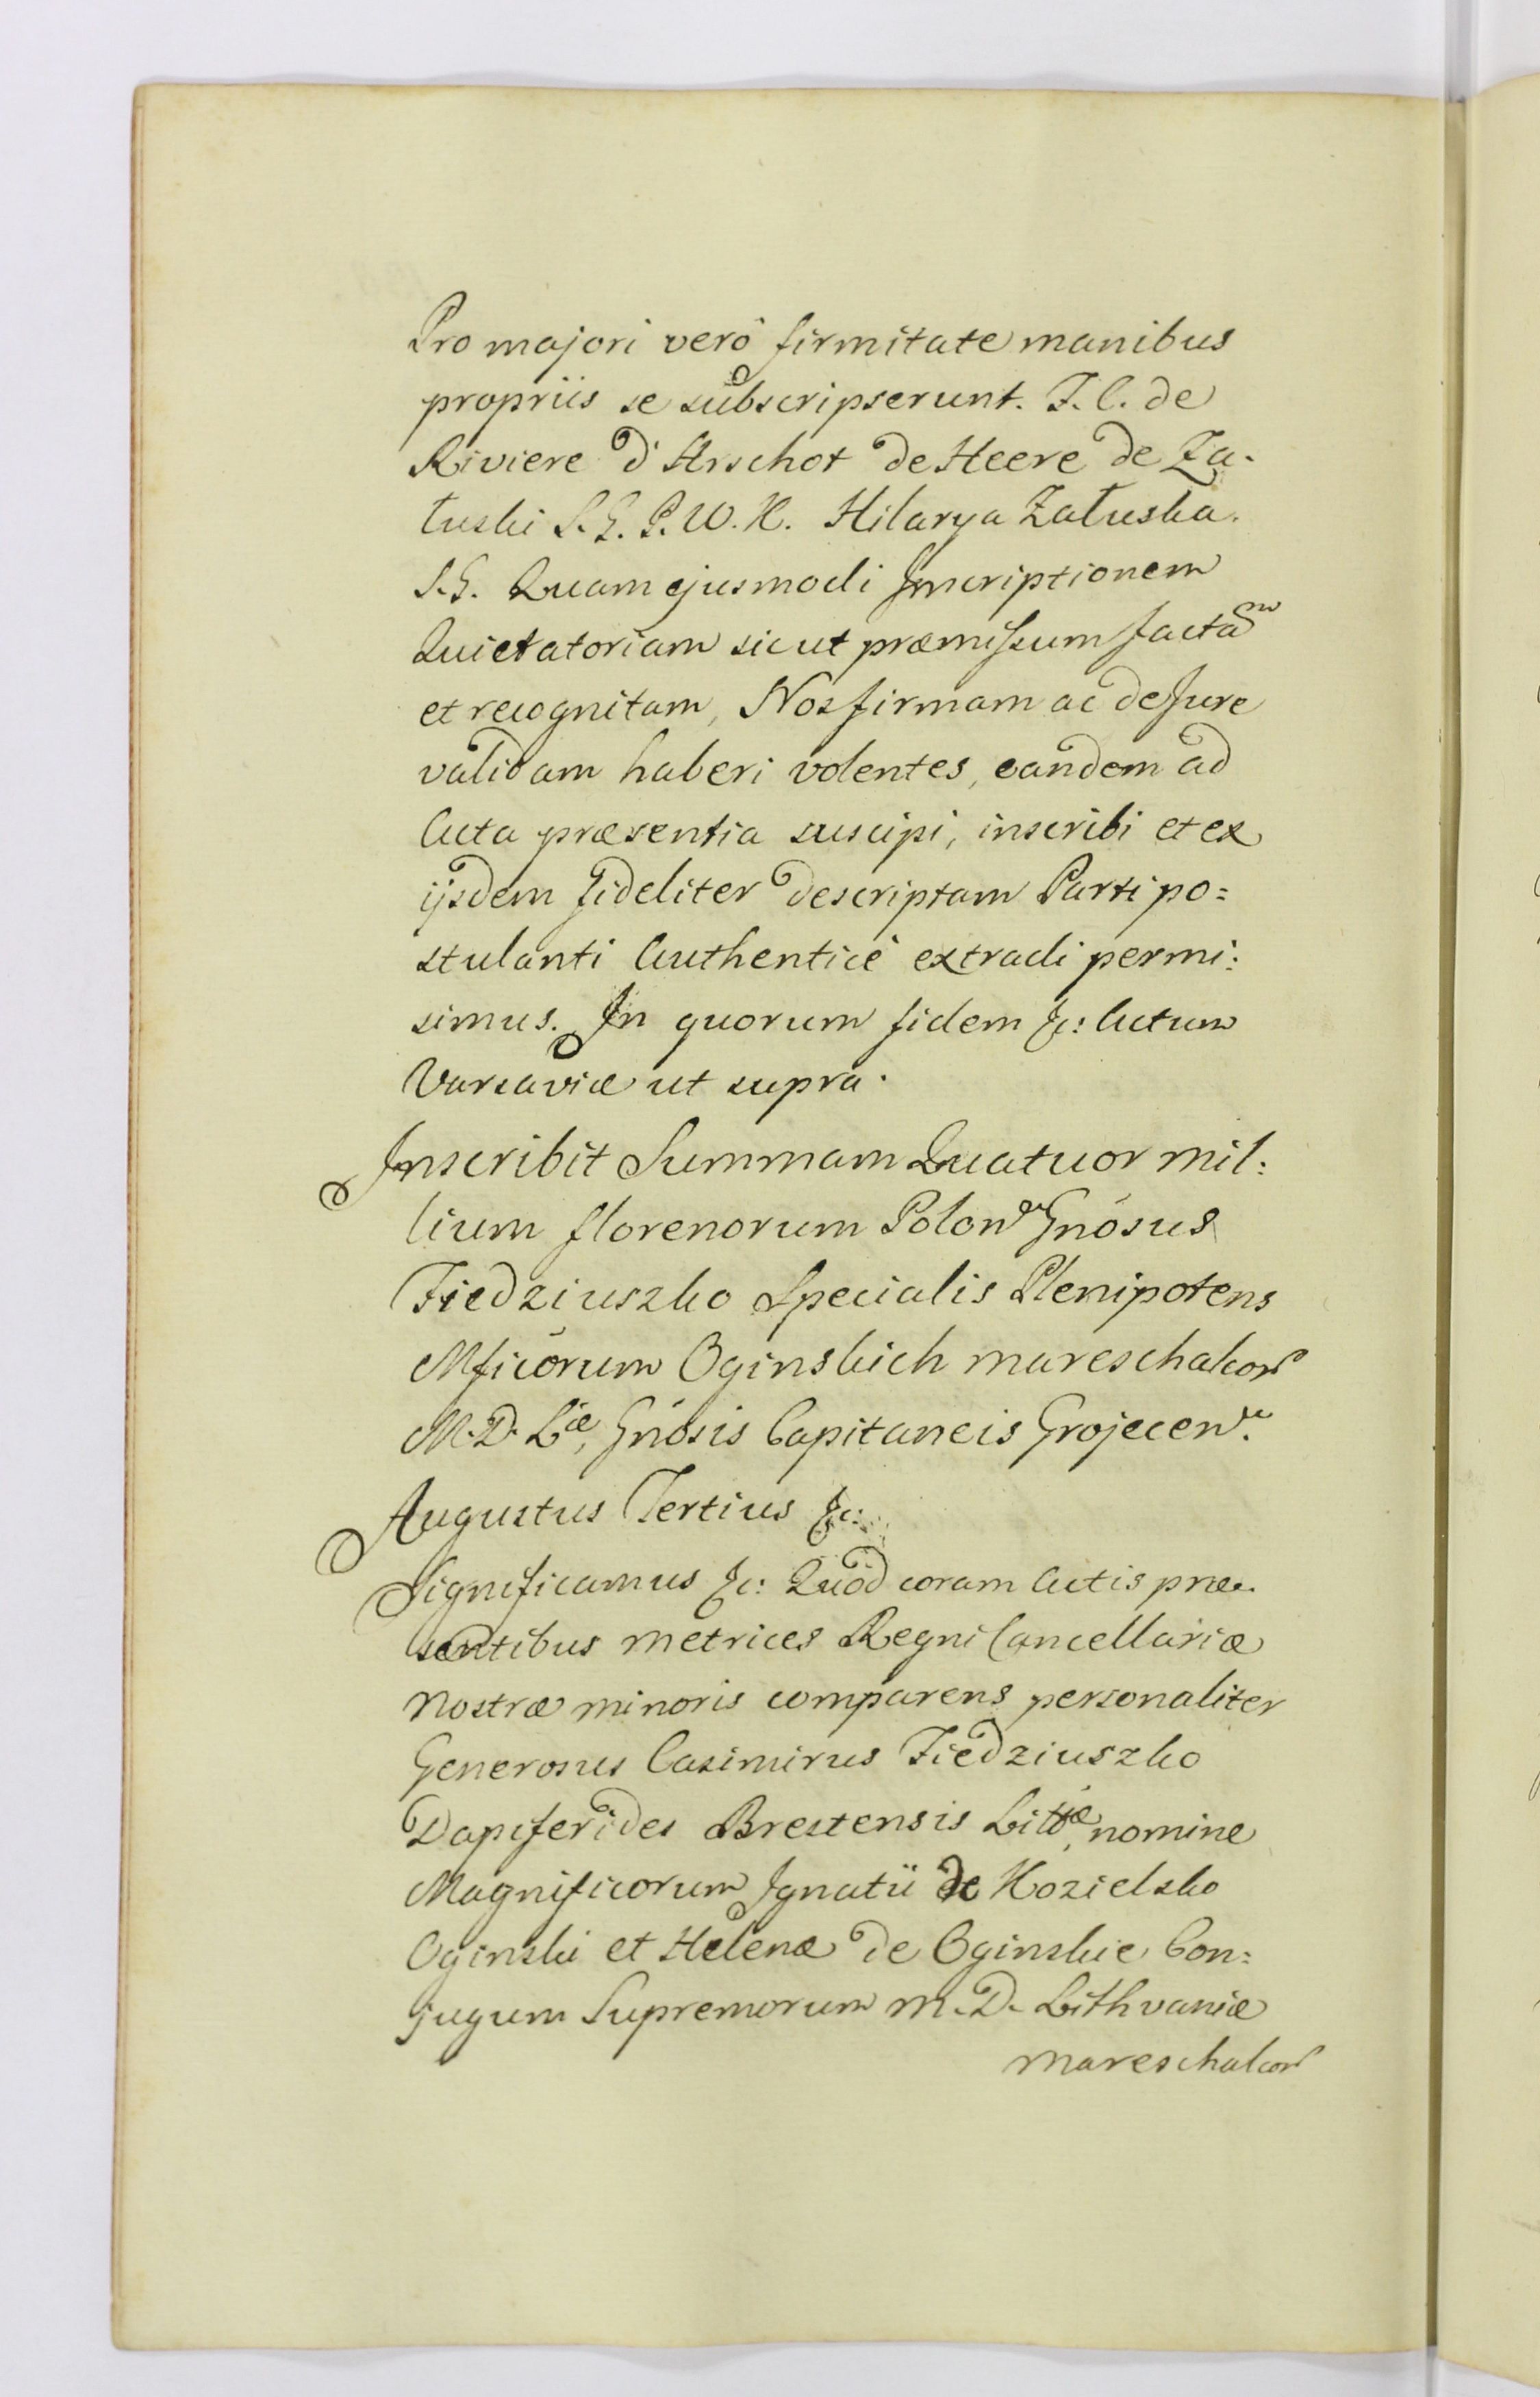 Pro majori verò firmitate manibus
propriis se subscripserunt. F. C. de
Riviere d'Arschot de Heere de Za-
łuski S. G. P. W. K. Hilarya Załuska.
S. G. Quam ejusmodi Inscriptionem
Quietatoriam sicut præmissum factam
et recognitam, Nos firmam ac de Jure
validam haberi volentes, eandem ad
Acta præsentia suscipi, inscribi et ex
ijsdem fideliter descriptam Parti po=
stulanti Authenticè extradi permi:
simus. In quorum fidem &c: Actum
Varsaviæ ut supra.
Inscribit Summam Quatuor mil:
lium florenorum Polon: Gnósus
Fiedziuszko Specialis Plenipotens
Mficorum Oginskich mareschalcor
M. D. Læ, Gnósis Capitaneis Grojecen.
Augustus Tertius &c:
Significamus &c: Quod coram Actis præ-
sentibus metrices Regni Cancellariæ
Nostræ minoris comparens personaliter
Generosus Casimirus Fiedziuszko
Dapiferides Brestensis Littæ, nomine
Magnificorum Ignatii de Kozielsko
Oginski et Helenæ de Oginskie Con:
jugum Supremorum M. D. Lithvaniæ
mareschalcor